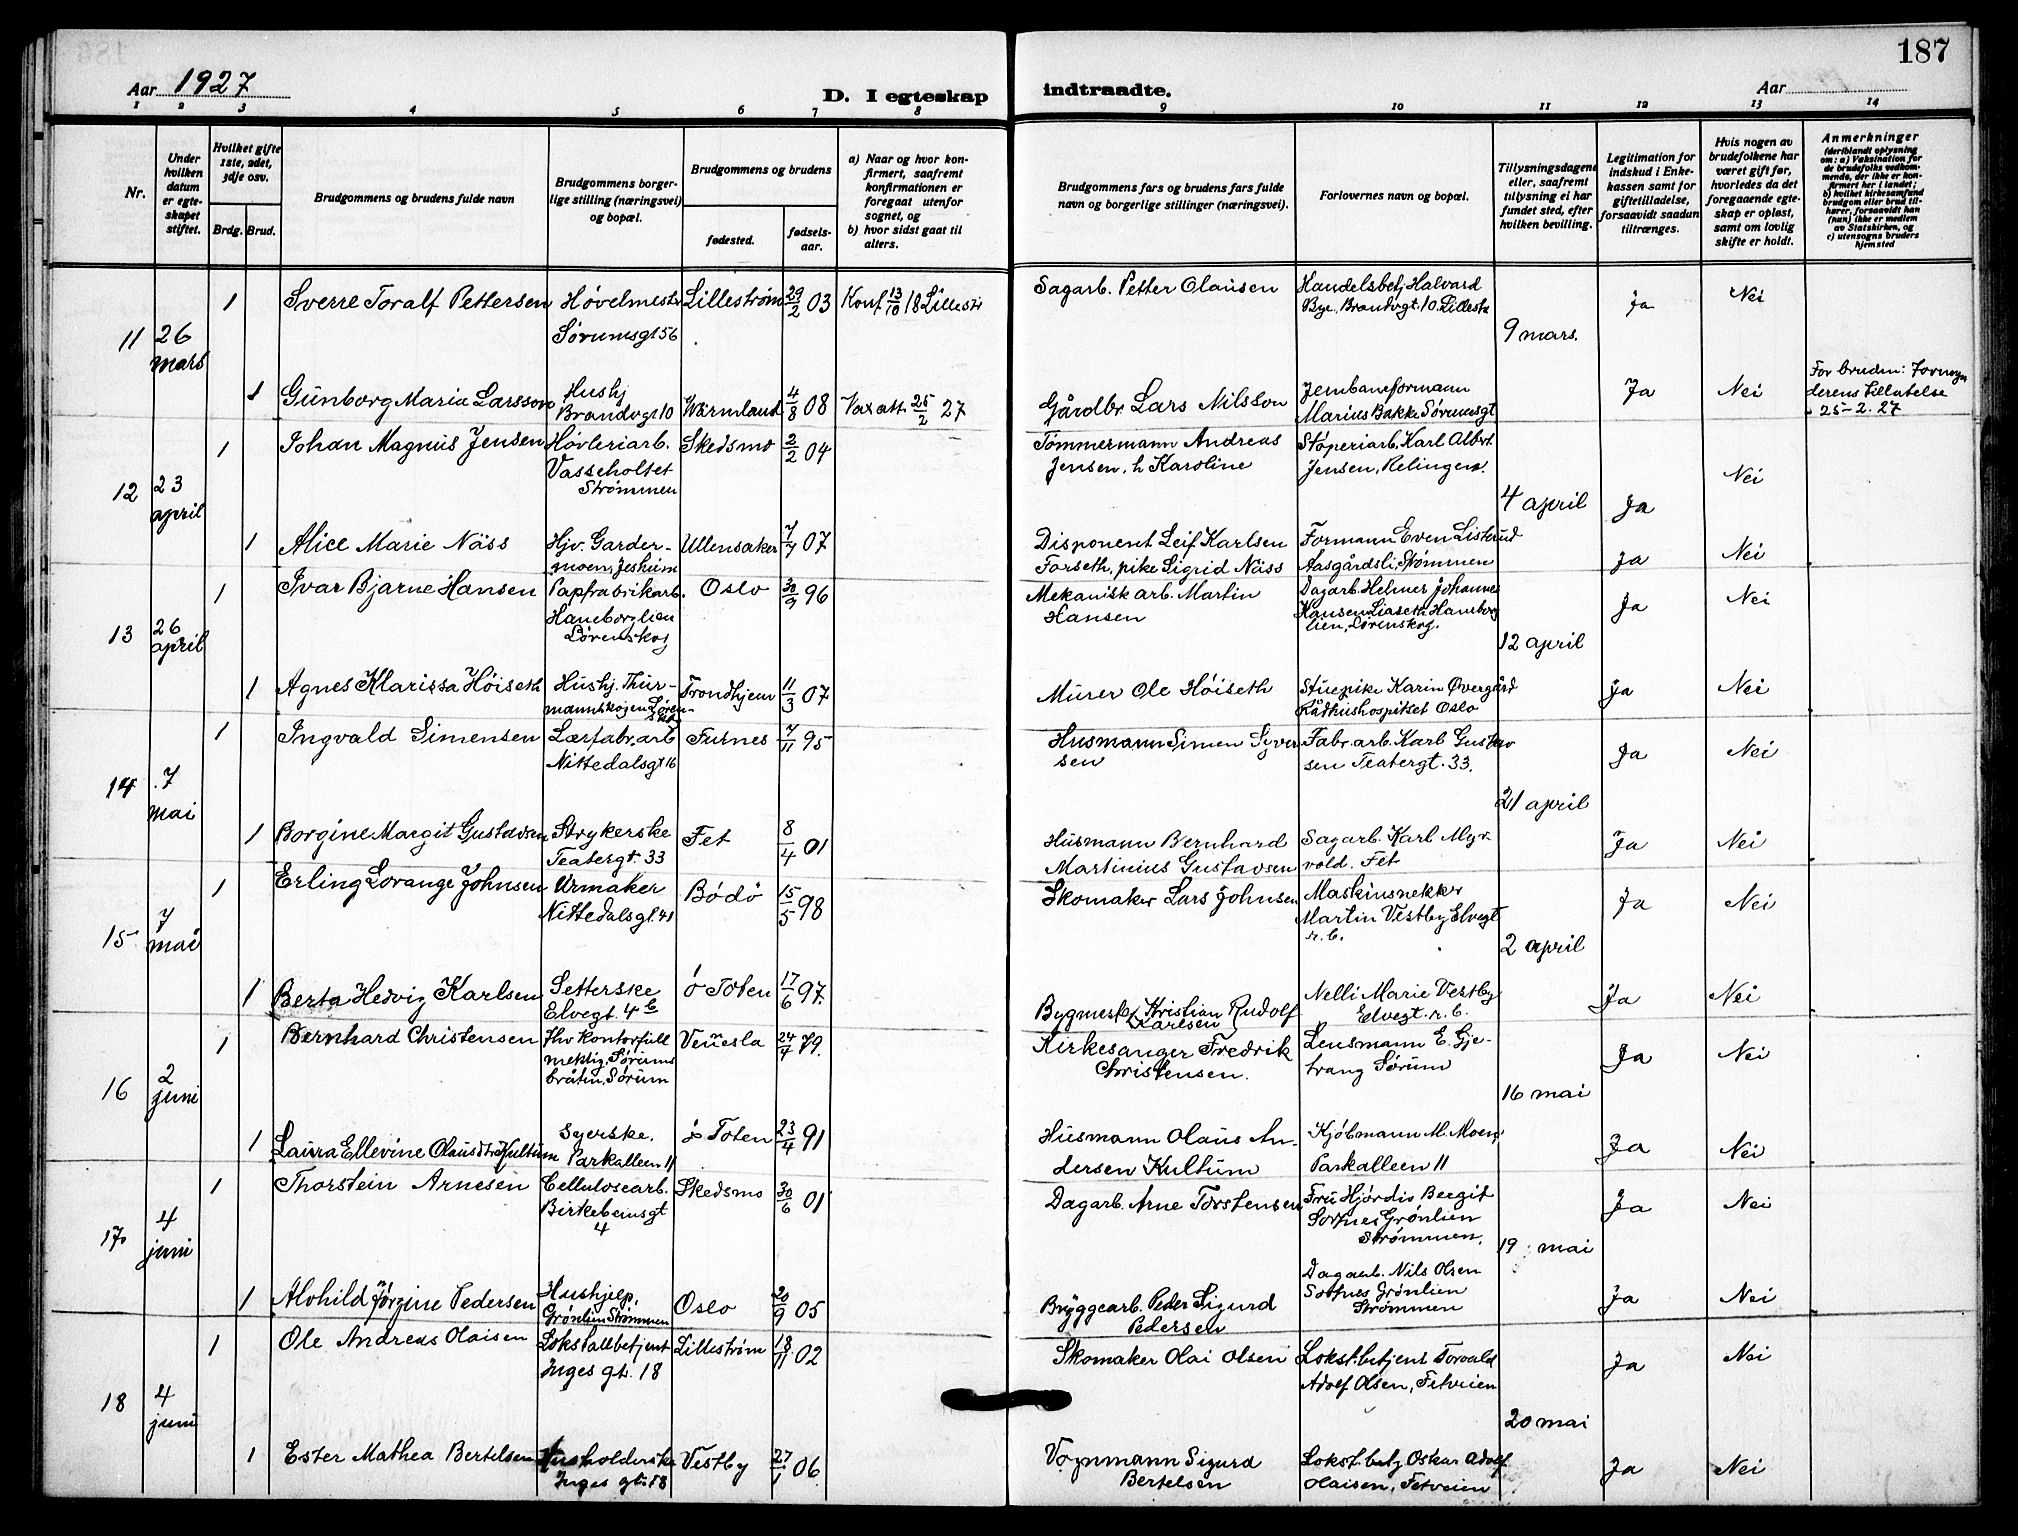 187
Aar 1927
D. I egteskap
indtraadte.
Aar
1 2 3 4 5 6 7 8 9 10 11 12 13 14
Nr.
Under hvilken datum er egteskapet stiftet.
Hvilket gifte 1ste, 2det, 3dje osv.
Brdg. Brud.
Brudgommens og brudens fulde navn
Brudgommens borgerlige stilling (næringsvei) og bopæl.
Brudgommens og brudens
fødested.
fødselsaar.
a) Naar og hvor konfirmert, saafremt konfirmationen er foregaat utenfor sognet, og
b) hvor sidst gaat til alters.
Brudgommens fars og brudens fars fulde navn og borgerlige stillinger (næringsvei).
Forlovernes navn og bopæl.
Tillysningsdagene eller, saafremt tillysning ei har fundet sted, efter hvilken bevilling.
Legitimation for indskud i Enkekassen samt for giftetilladelse, forsaavidt saadan tiltrænges.
Hvis nogen av brudefolkene har været gift før, hvorledes da det foregaaende egteskap er opløst, samt om lovlig skifte er holdt.
Anmerkninger (deriblandt oplysning om: a) Vaksination for de brudefolks vedkommende, der ikke er konfirmert her i landet; b) hvilket kirkesamfund brudgom eller brud tilhører, forsaavidt han (hun) ikke er medlem av Statskirken, og c) utensogns bruders hjemsted
11 26 mars
1 Sverre Toralf Pettersen Høvelmestr Sørumsgt 56 Lillestrøm 29/2 03 Konf 13/10 18 Lillestr
Sagarb. Petter Olausen
Handelsbetj Halvard Bye, Brandvgt. 10. Lillestr
9 mars.
Ja Nei
1 Gunborg Maria Larsson Hushj Brandvgt 10 Wärmland 4/8 08 Vax att. 25/2 27
Gårdbr Lars Nilsson
Jernbaneformann Marius Bakke Sørumsgt
Ja Nei
For bruden: Formynderens tillatelse 25-2. 27
12 23 april
1 Johan Magnus Jensen Høvleriarb. Vasseholtet Strømmen Skedsmo 2/2 04
Tømmermann Andreas Jensen, h Karoline
Støperiarb. Karl Albrt Jensen, Relingen.
4 april
Ja Nei
1 Alice Marie Näss Hjv. Gardermoen, Jesheim Ullensaker 7/7 07
Disponent Leif Karlsen Forseth, pike Sigrid Näss
Formann Even Listerud Aasgårdsli, Strømmen
Ja Nei
13 26 april
1 Ivar Bjarne Hansen Papfabrikarb. Haneborglien Lørenskog Oslo 30/9 96
Mekanisk arb. Martin Hansen
Dagarb. Helmer Johannes Hansen Liaseth Haneborglien, Lørenskog.
12 april
Ja Nei
1 Agnes Klarissa Höiseth Hushj. Thurmannskogen Trondhjem 11/3 07
Murer Ole Höiseth
Stuepike Karin Øvergård Rådhushospitset Oslo
Ja Nei
14 7 mai
1 Ingvald Simensen Lærfabr. arb Nittedalsgt 16 Furnes 7/11 95
Husmann Simen Syversen
Fabr. arb. Karl Gustavsen Teatergt. 33.
21 april
Ja Nei
1 Borgine Margit Gustavsen Strykerske Teatergt. 33 Fet 8/4 01
Husmann Bernhard Martinius Gustavsen
Sagarb. Karl Myrvold. Fet
Ja Nei
15 7 mai
1 Erling Lorange Johnsen Urmaker Nittedalsgt. 41 Bodö 15/5 98
Skomaker Lars Johnsen
Maskinsnekker Martin Vestby Elvegt r. 6.
2 april
Ja Nei
1 Berta Hedvig Karlsen Setterske Elvegt. 4 b ö Toten 17/6 97.
Bygmestr Kristian Rudolf Karlsen
Nelli Marie Vestby Elvegt. r. 6.
Ja Nei
16 2 juni
1 Bernhard Christensen Hv kontorfullmektig, Sørumsbråten, Sørum Venesla 24/4 79.
Kirkesanger Fredrik Christensen.
Lensmann E. Gjetrang Sørum
16 mai
Ja Nei
1 Laura Ellevine Olausdtr Kultum Syerske. Parkalleen 11 ö Toten 23/4 91
Husmann Olaus Andersen Kultum
Kjöbmann M. Moen, Parkalleen 11
Ja Nei
17 4 juni
1 Thorstein Arnesen Cellulosearb. Birkebeinsgt 4 Skedsmo 30/6 01
Dagarb. Arne Torstensen
Fru Hjördis Bergit Sörnes Grönlien Strömmen.
19 mai
Ja Nei
1 Alvhild Jørgine Pedersen Hushjelp, Grönlien Strømmen Oslo 20/9 05
Bryggearb. Peder Sigurd Pedersen
Dagarb. Nils Olsen Sörnes Grönlien Strömmen
Ja Nei
18 4 juni
1 Ole Andreas Olaisen Lokstallbetjent Inges gt. 18 Lillestrøm 18/11 02
Skomaker Olai Olsen
Lokst. betjent Torvald Adolf Olsen, Fetveien
20 mai
Ja Nei
1 Ester Mathea Bertelsen Husholderske Inges gt. 18 Vestby 27/1 06
Vognmann Sigurd Bertelsen
Lokst. betj Oskar Adolf Olaisen, Fetveien
Ja Nei